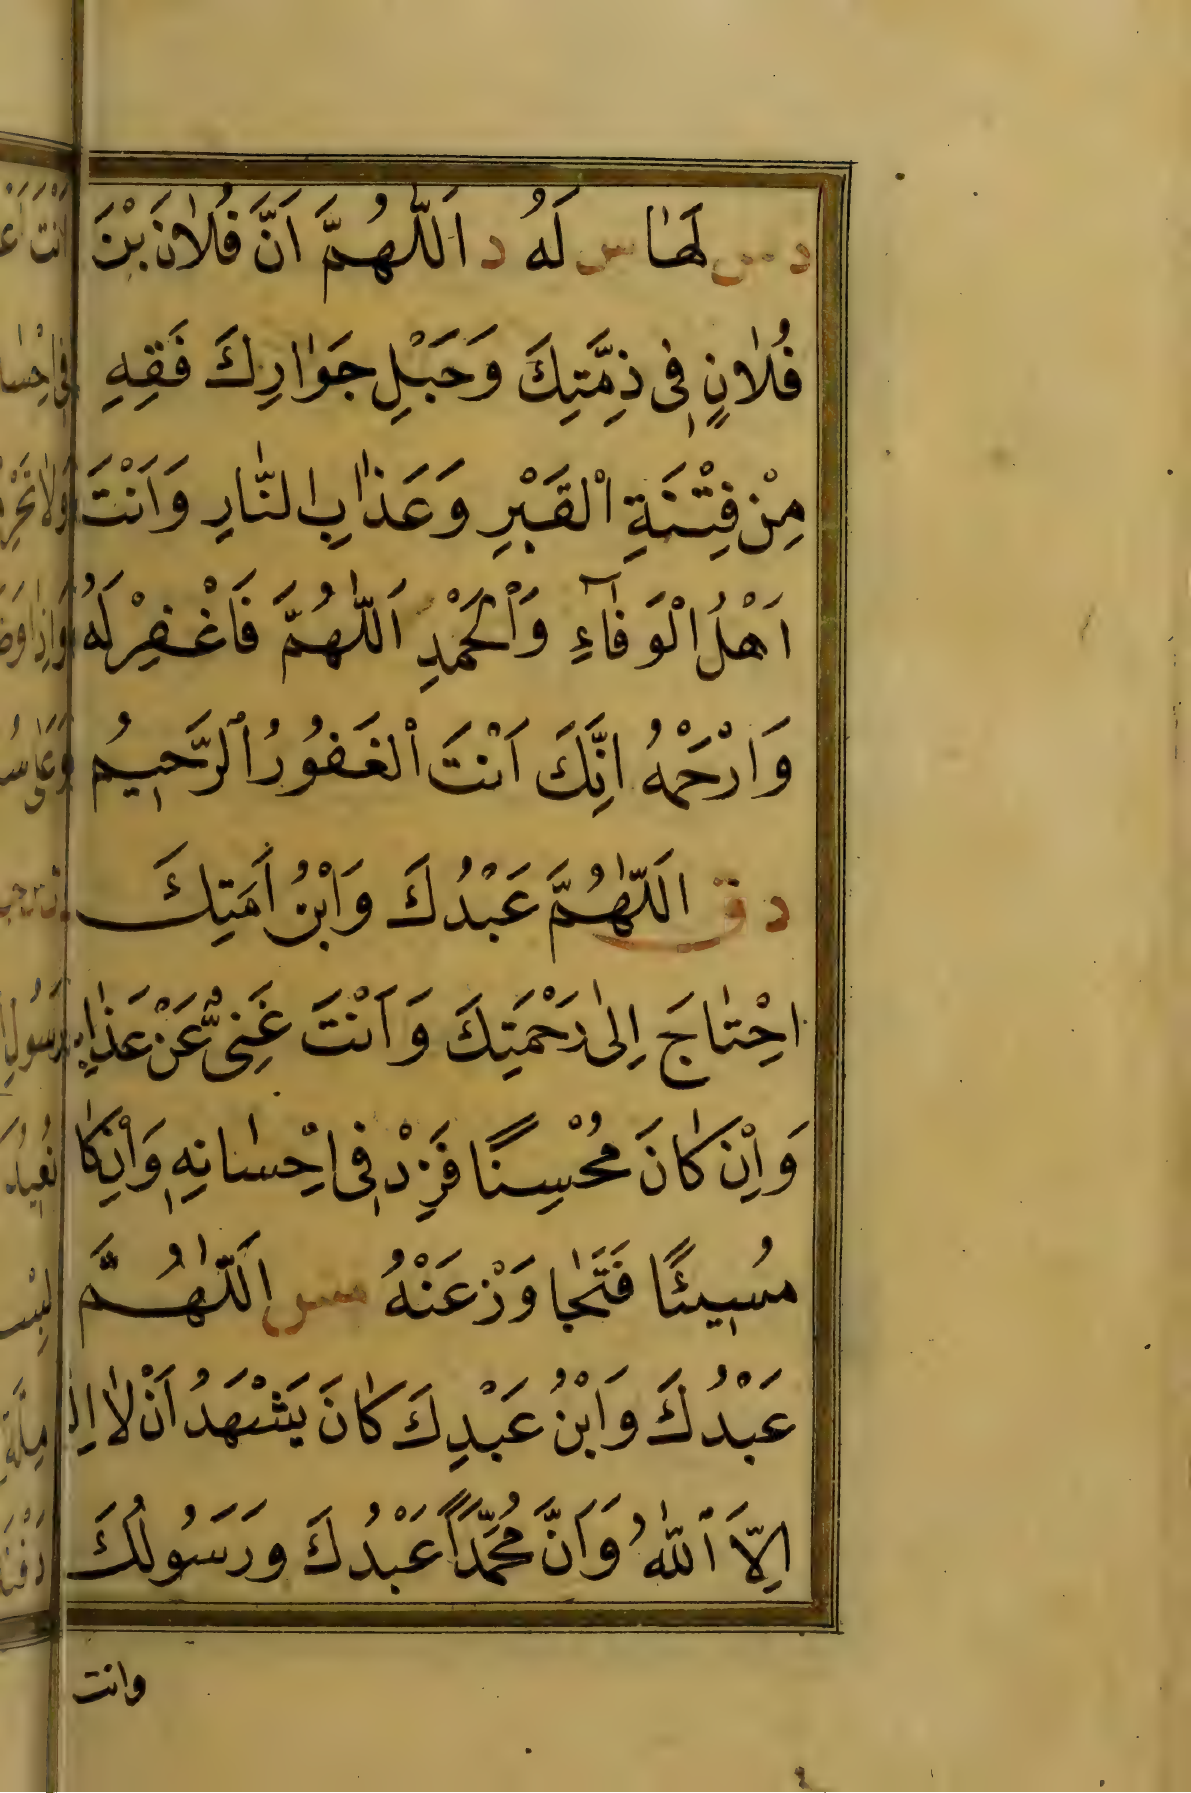 د س لَهَا س لَهُ د اَللّٰهُمَّ اَنَّ فُلَانَ بْنَ
فُلَانٍ فِى ذِمَّتِكَ وَحَبْلِ جَوَارِكَ فَقِهِ
مِنْ فِتْنَةِ الْقَبْرِ وَعَذَابِ النَّارِ وَاَنْتَ
اَهْلُ الْوَفَآءِ وَالْحَمْدِ اَللّٰهُمَّ فَاغْفِرْ لَهُ
وَارْحَمْهُ اِنَّكَ اَنْتَ الْغَفُورُ الرَّحِيمُ
د ق اَللّٰهُمَّ عَبْدُكَ وَابْنُ اَمَتِكَ
احْتَاجَ اِلٰى رَحْمَتِكَ وَاَنْتَ غَنِىٌّ عَنْ عَذَابِهِ
وَاِنْ كَانَ مُحْسِنًا فَزِدْ فِى اِحْسَانِهِ وَاِنْ كَا
مُسِيئًا فَتَجَاوَزْ عَنْهُ مس اَللّٰهُمَّ
عَبْدُكَ وَابْنُ عَبْدِكَ كَانَ يَشْهَدُ اَنْ لَا اِلٰهَ
اِلَّا اللّٰهُ وَاَنَّ مُحَمَّدًا عَبْدُكَ وَرَسُولُكَ
وانت